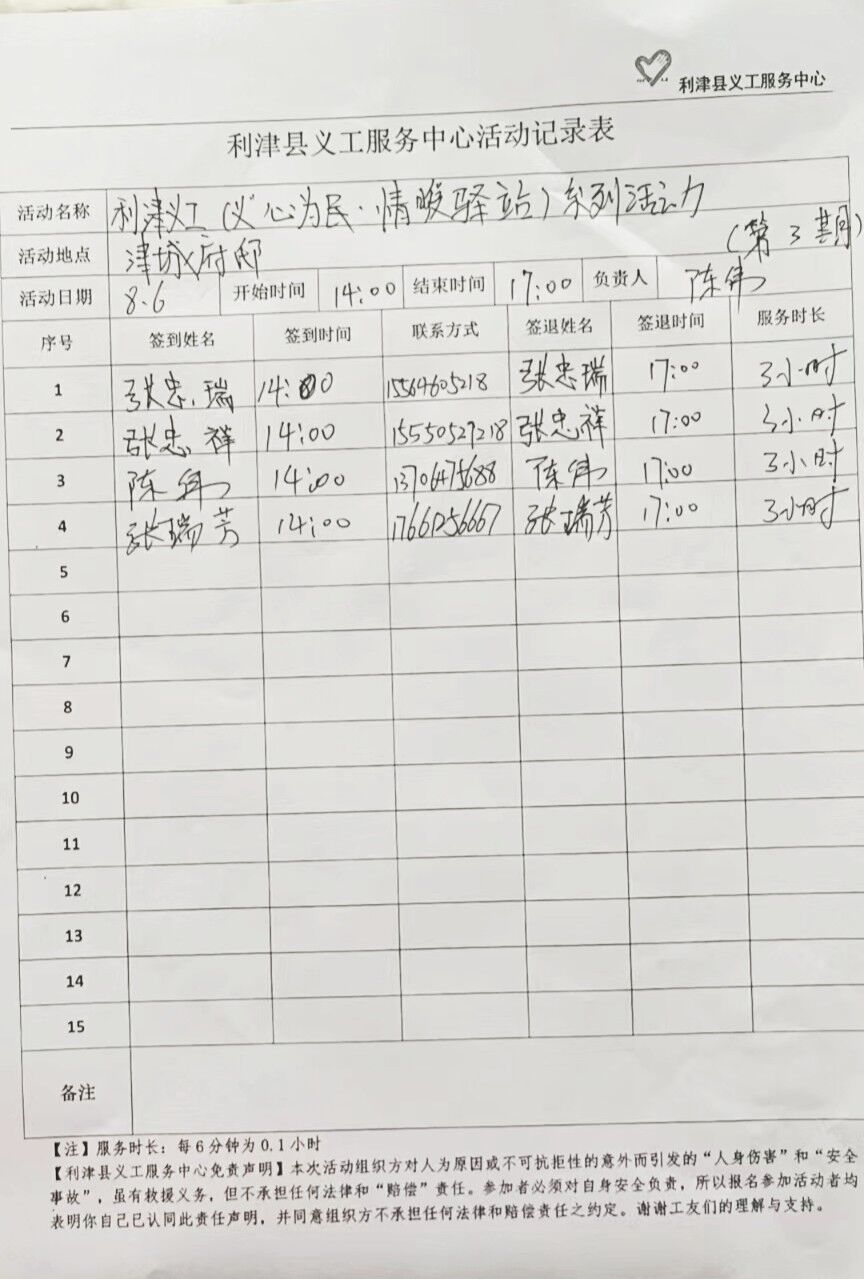 利津县义工服务中心
利津县义工服务中心活动记录表
活动名称 利津义工《义心为民·情暖驿站》系列活动
(第3期)
活动地点 津城府邸
活动日期 8.6 开始时间 14:00 结束时间 17:00 负责人 陈伟
序号 签到姓名 签到时间 联系方式 签退姓名 签退时间 服务时长
1 张忠瑞 14:00 15564605218 张忠瑞 17:00 3小时
2 张忠祥 14:00 15550527218 张忠祥 17:00 3小时
3 陈伟 14:00 13706475688 陈伟 17:00 3小时
4 张瑞芳 14:00 17661256667 张瑞芳 17:00 3小时
5
6
7
8
9
10
11
12
13
14
15
备注
【注】服务时长：每6分钟为0.1小时
【利津县义工服务中心免责声明】本次活动组织方对人为原因或不可抗拒性的意外而引发的“人身伤害”和“安全
事故”，虽有救援义务，但不承担任何法律和“赔偿”责任。参加者必须对自身安全负责，所以报名参加活动者均
表明你自己已认同此责任声明，并同意组织方不承担任何法律和赔偿责任之约定。谢谢工友们的理解与支持。